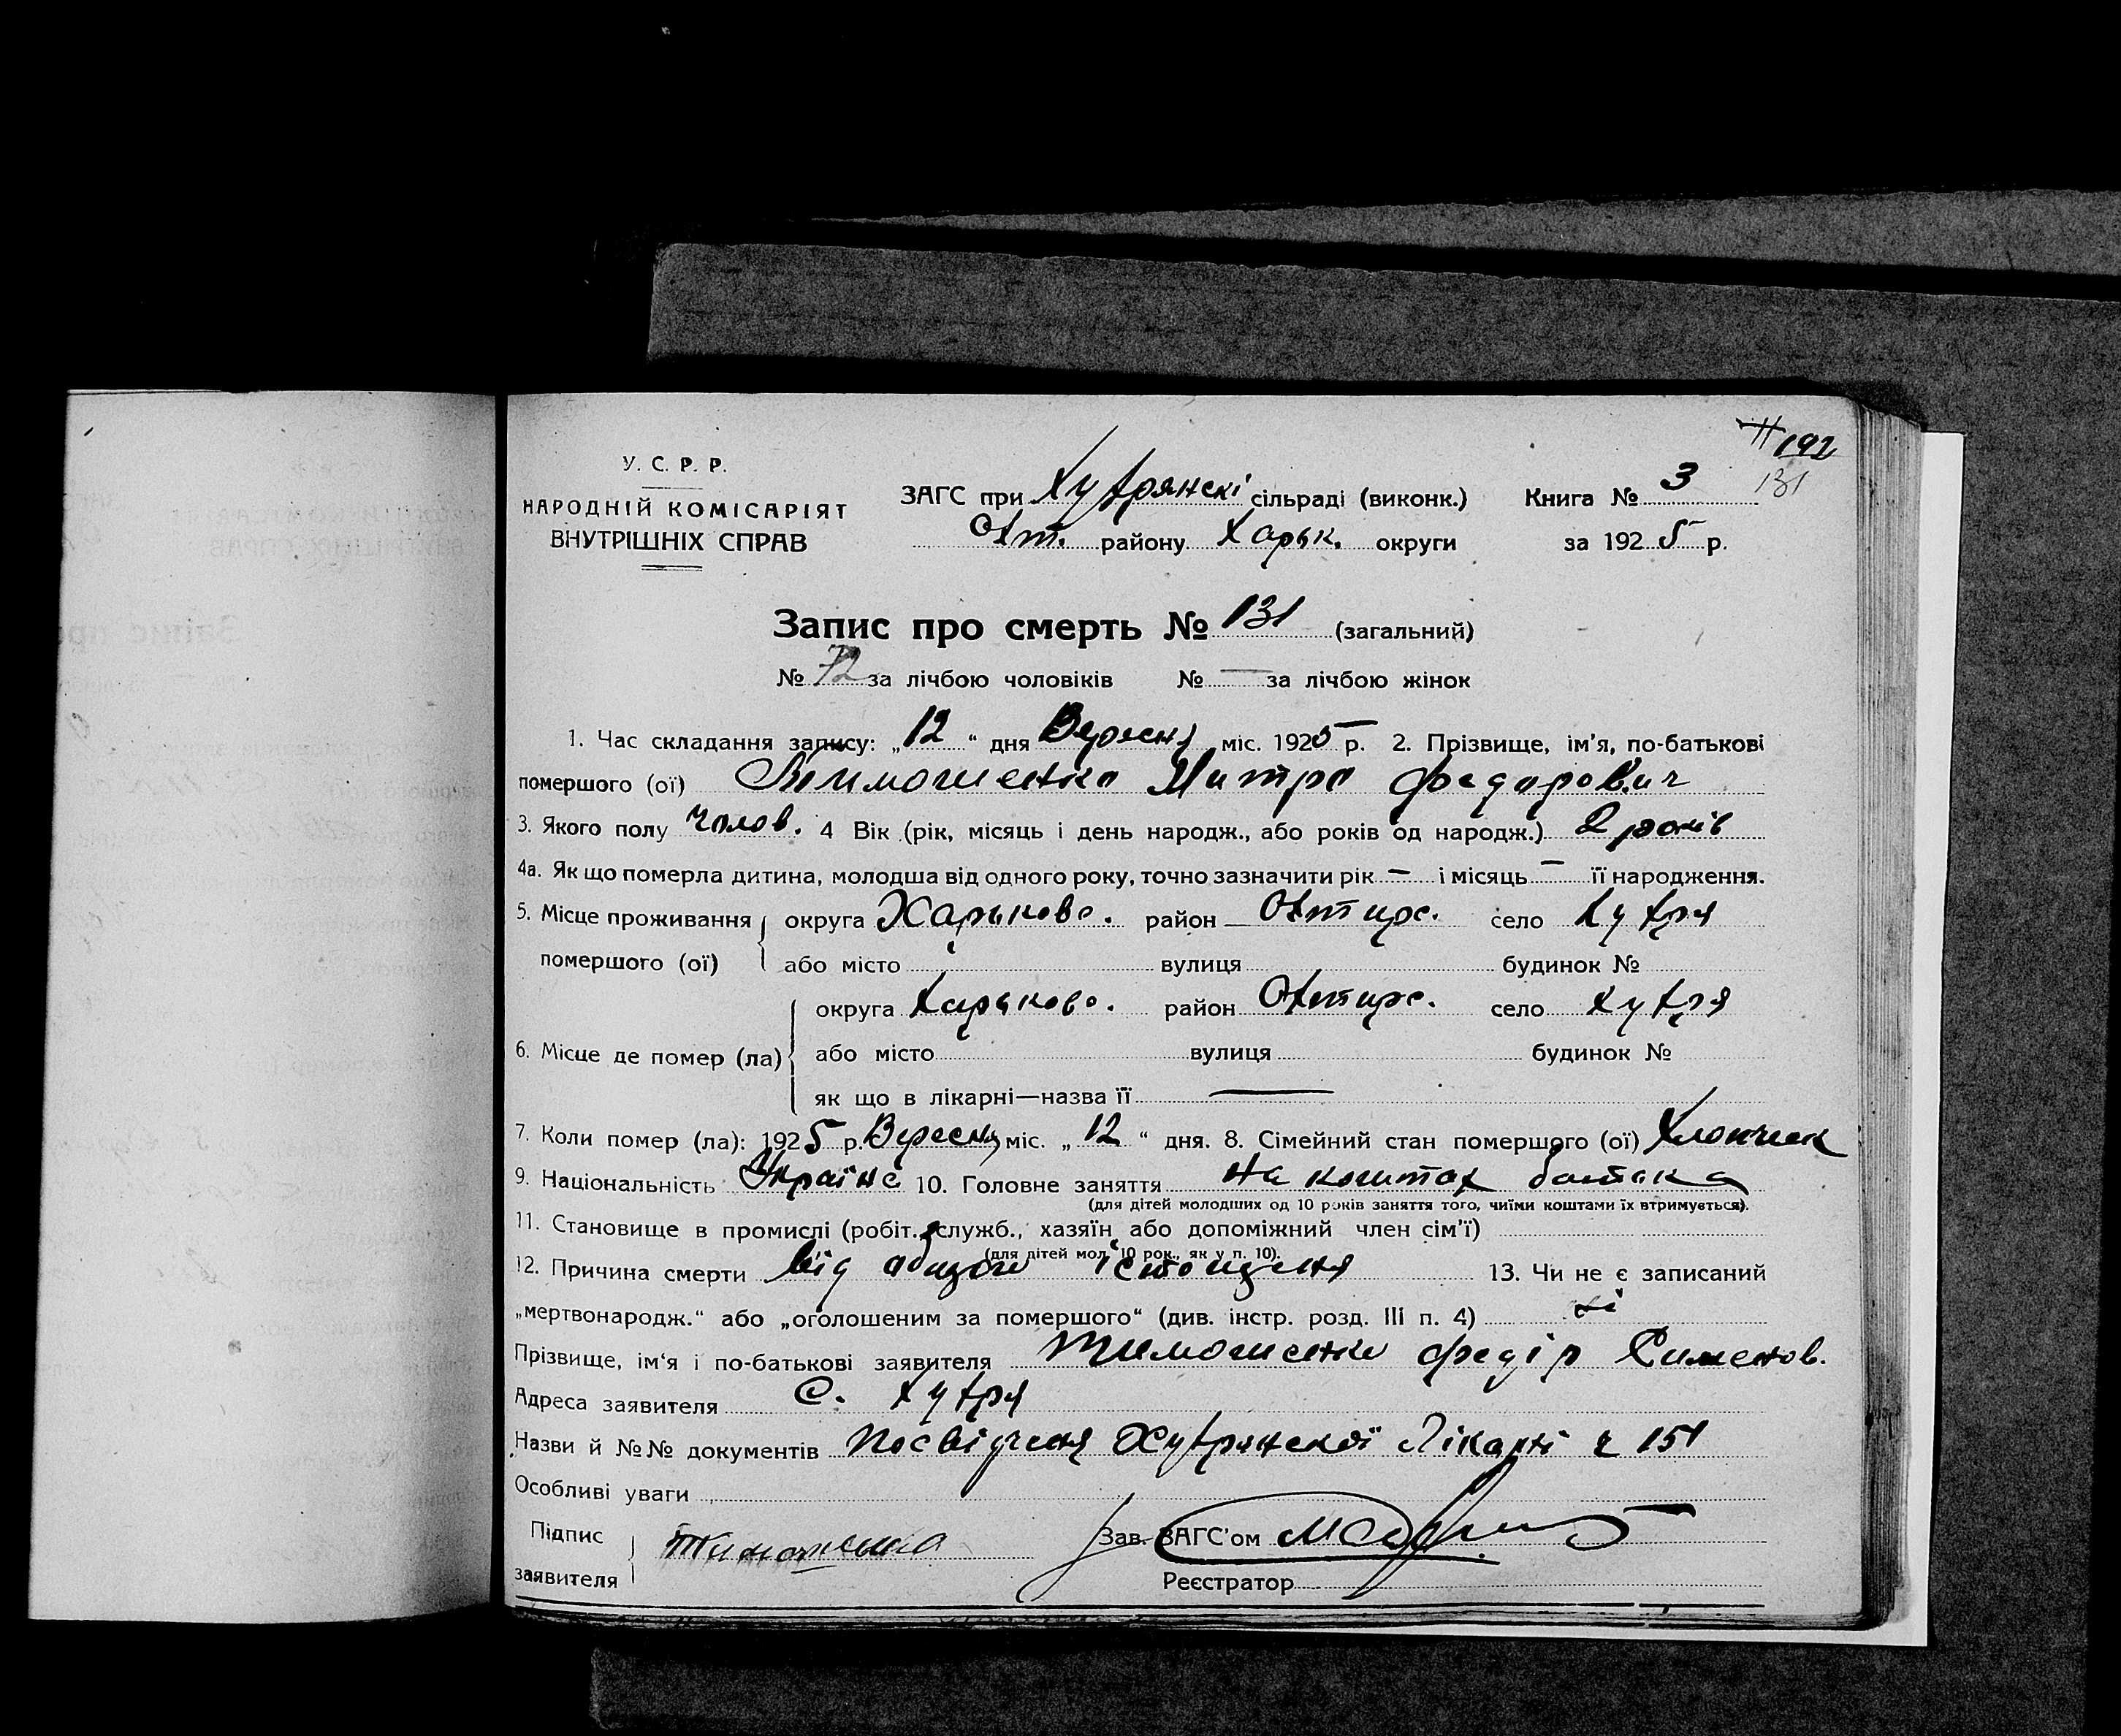 192
У. С. Р. Р.
НАРОДНІЙ КОМІСАРІЯТ
ВНУТРІШНІХ СПРАВ
ЗАГС при Хухрянскі сільраді (виконк.)
Охт. району Харьк. округи
Книга № 3 131
за 1925 р.
Запис про смерть № 131 (загальний)
№ 72 за лічбою чоловіків № — за лічбою жінок
1. Час складання запису: „12“ дня Вересня міс. 1925 р. 2. Прізвище, ім'я, по-батькові
помершого (ої) Тимошенко Митро Федорович
3. Якого полу чолов. 4 Вік (рік, місяць і день народж., або років од народж.) 2 років
4а. Як що померла дитина, молодша від одного року, точно зазначити рік — і місяць — її народження.
5. Місце проживання округа Харьково. район Охтирс. село Хухря
помершого (ої) або місто вулиця будинок №
округа Харьково. район Охтирс. село Хухря
6. Місце де помер (ла) або місто вулиця будинок №
як що в лікарні—назва її —
7. Коли помер (ла): 1925 р. Вересня міс. „12“ дня. 8. Сімейний стан помершого (ої) Хлопчик
9. Національність Україне 10. Головне заняття на коштах батька
(для дітей молодших од 10 років заняття того, чиїми коштами їх втримується).
11. Становище в промислі (робіт., служб., хазяїн або допоміжний член сім'ї)
(для дітей мол. 10 рок., як у п. 10).
12. Причина смерти від істощеня 13. Чи не є записаний
„мертвонародж.“ або „оголошеним за помершого“ (див. інстр. розд. III п. 4) ні
Прізвище, ім'я і по-батькові заявителя Тимошенко Федір Сименов.
Адреса заявителя с. Хухря
Назви й №№ документів Посвідченя Хухрянскої Лікарні ч 151
Особливі уваги
Підпис
заявителя Тимошенко
Зав. ЗАГС'ом
Реєстратор